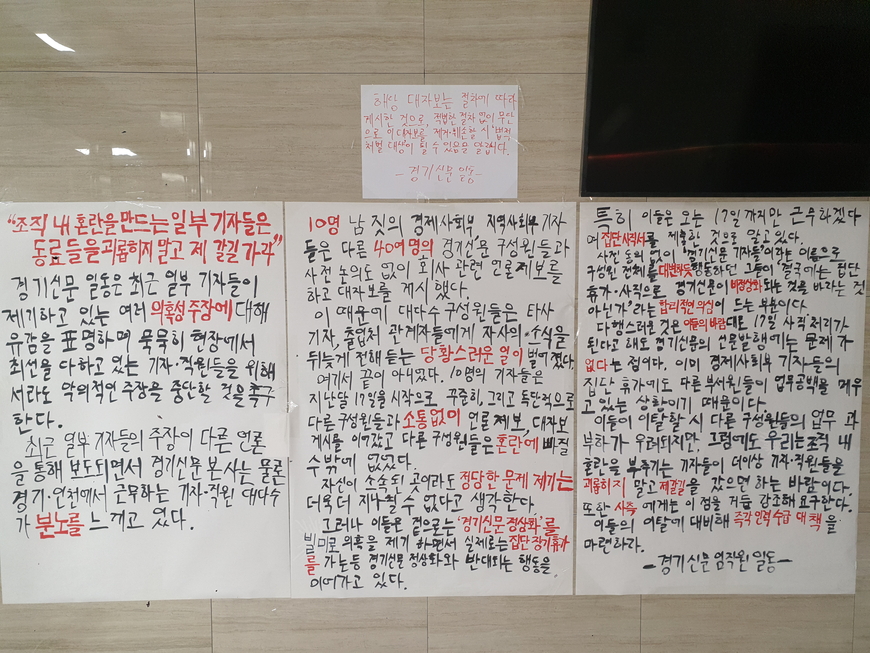 해당 대자보는 절차에 따라
게시한 것으로, 적법한 절차 없이 무단
으로 이 대자보를 제거·훼손할 시 '법적
처벌 대상이 될 수 있음'을 알립니다.
- 경기신문 일동 -
"조직 내 혼란을 만드는 일부 기자들은
동료들을 괴롭히지 말고 제 갈길 가라"
경기신문 일동은 최근 일부 기자들이
제기하고 있는 여러 의혹성 주장에 대해
유감을 표명하며 묵묵히 현장에서
최선을 다하고 있는 기자·직원들을 위해
서라도 악의적인 주장을 중단할 것을 촉구
한다.
최근 일부 기자들의 주장이 다른 언론
을 통해 보도되면서 경기신문 본사는 물론
경기·인천에서 근무하는 기자·직원 대다수
가 분노를 느끼고 있다.
10명 남짓의 경제사회부, 지역사회부 기자
들은 다른 40여 명의 경기신문 구성원들과
사전 논의도 없이 회사 관련 언론제보를
하고 대자보를 게시했다.
이 때문에 대다수 구성원들은 타사
기자, 출입처 관계자들에게 자사의 소식을
뒤늦게 전해 듣는 당황스러운 일이 벌어졌다.
여기서 끝이 아니었다. 10명의 기자들은
지난달 17일을 시작으로 꾸준히, 그리고 독단적으로
다른 구성원들과 소통없이 언론 제보, 대자보
게시를 이어갔고 다른 구성원들은 혼란에 빠질
수밖에 없었다.
자신이 소속된 곳이라도 정당한 문제 제기는
더욱더 지나칠 수 없다고 생각한다.
그러나 이들은 겉으로는 '경기신문 정상화'를
빌미로 의혹을 제기하면서 실제로는 집단 장기휴가
를 가는 등 경기신문 정상화와 반대되는 행동을
이어가고 있다.
특히 이들은 오는 17일까지만 근무하겠다
며 집단 사직서를 제출한 것으로 알고 있다.
사전 논의 없이 '경기신문 기자들'이라는 이름으로
구성원 전체를 대변하듯 행동하던 그들이 결국에는 집단
휴가·사직으로 경기신문이 비정상화 되는 것을 바라는 것
아닌가'라는 합리적인 의심이 드는 부분이다.
다행스러운 것은 이들의 바람대로 17일 사직 처리가
된다고 해도 경기신문의 신문발행에는 문제가
없다는 점이다. 이미 경제사회부 기자들의
집단 휴가에도 다른 부서원들이 업무공백을 메우
고 있는 상황이기 때문이다.
이들이 이탈할 시 다른 구성원들의 업무 과
부하가 우려되지만, 그럼에도 우리는 조직 내
혼란을 부추기는 기자들이 더이상 기자·직원들을
괴롭히지 말고 제갈길을 갔으면 하는 바람이다.
또한 사측에게는 이 점을 거듭 강조해 요구한다.
이들의 이탈에 대비해 즉각 인력 수급 대책을
마련하라.
- 경기신문 임직원 일동 -